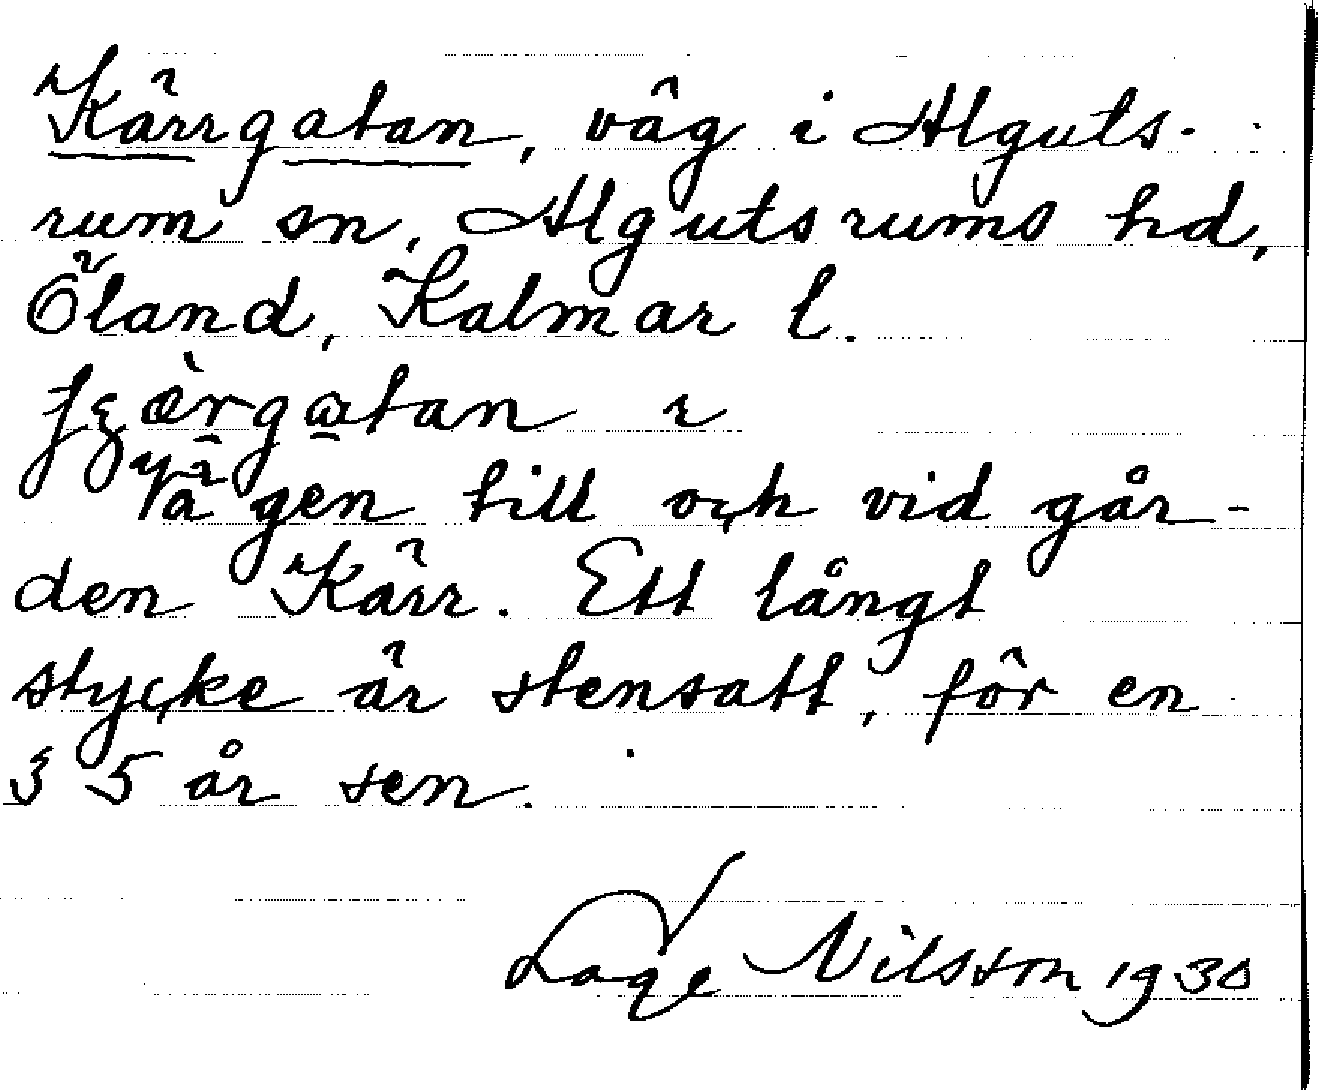 Kärrgatan, väg i Alguts-
rum sn, Algutsrums hd,
Öland, Kalmar l.
Vägen till och vid går-
den Kärr. Ett långt
stycke är stensatt, för en
35 år sen.
Lage Nilsson 1930